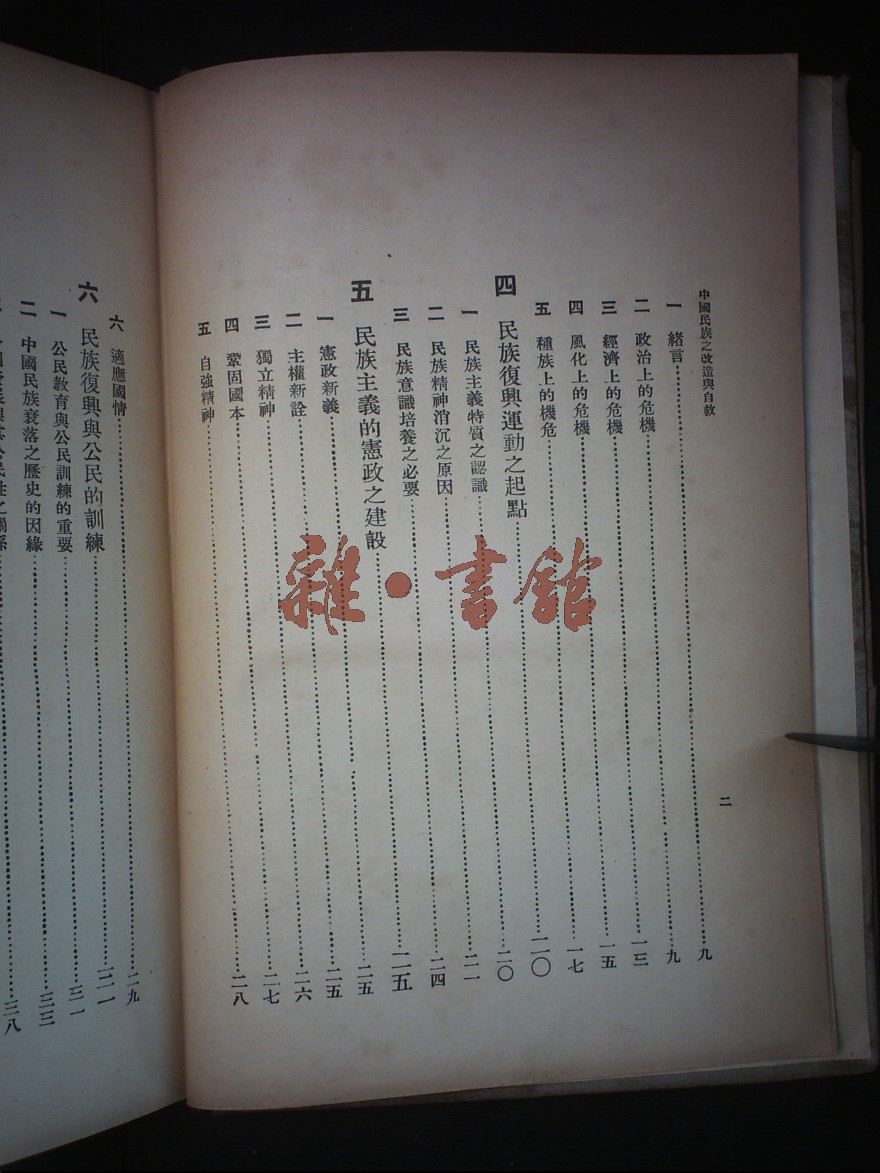 中國民族之改造與自救
二
一 緒言……九
二 政治上的危機……九
三 經濟上的危機……一三
四 風化上的危機……一五
五 種族上的機危……一七
四 民族復興運動之起點……二〇
一 民族主義特質之認識……二〇
二 民族精神消沉之原因……二一
三 民族意識培養之必要……二四
五 民族主義的憲政之建設……二五
一 憲政新義……二五
二 主權新詮……二五
三 獨立精神……二六
四 鞏固國本……二七
五 自強精神……二八
六 適應國情……二九
六 民族復興與公民的訓練……三一
一 公民教育與公民訓練的重要……三一
二 中國民族衰落之歷史的因緣……三三
……三八
雜·書館